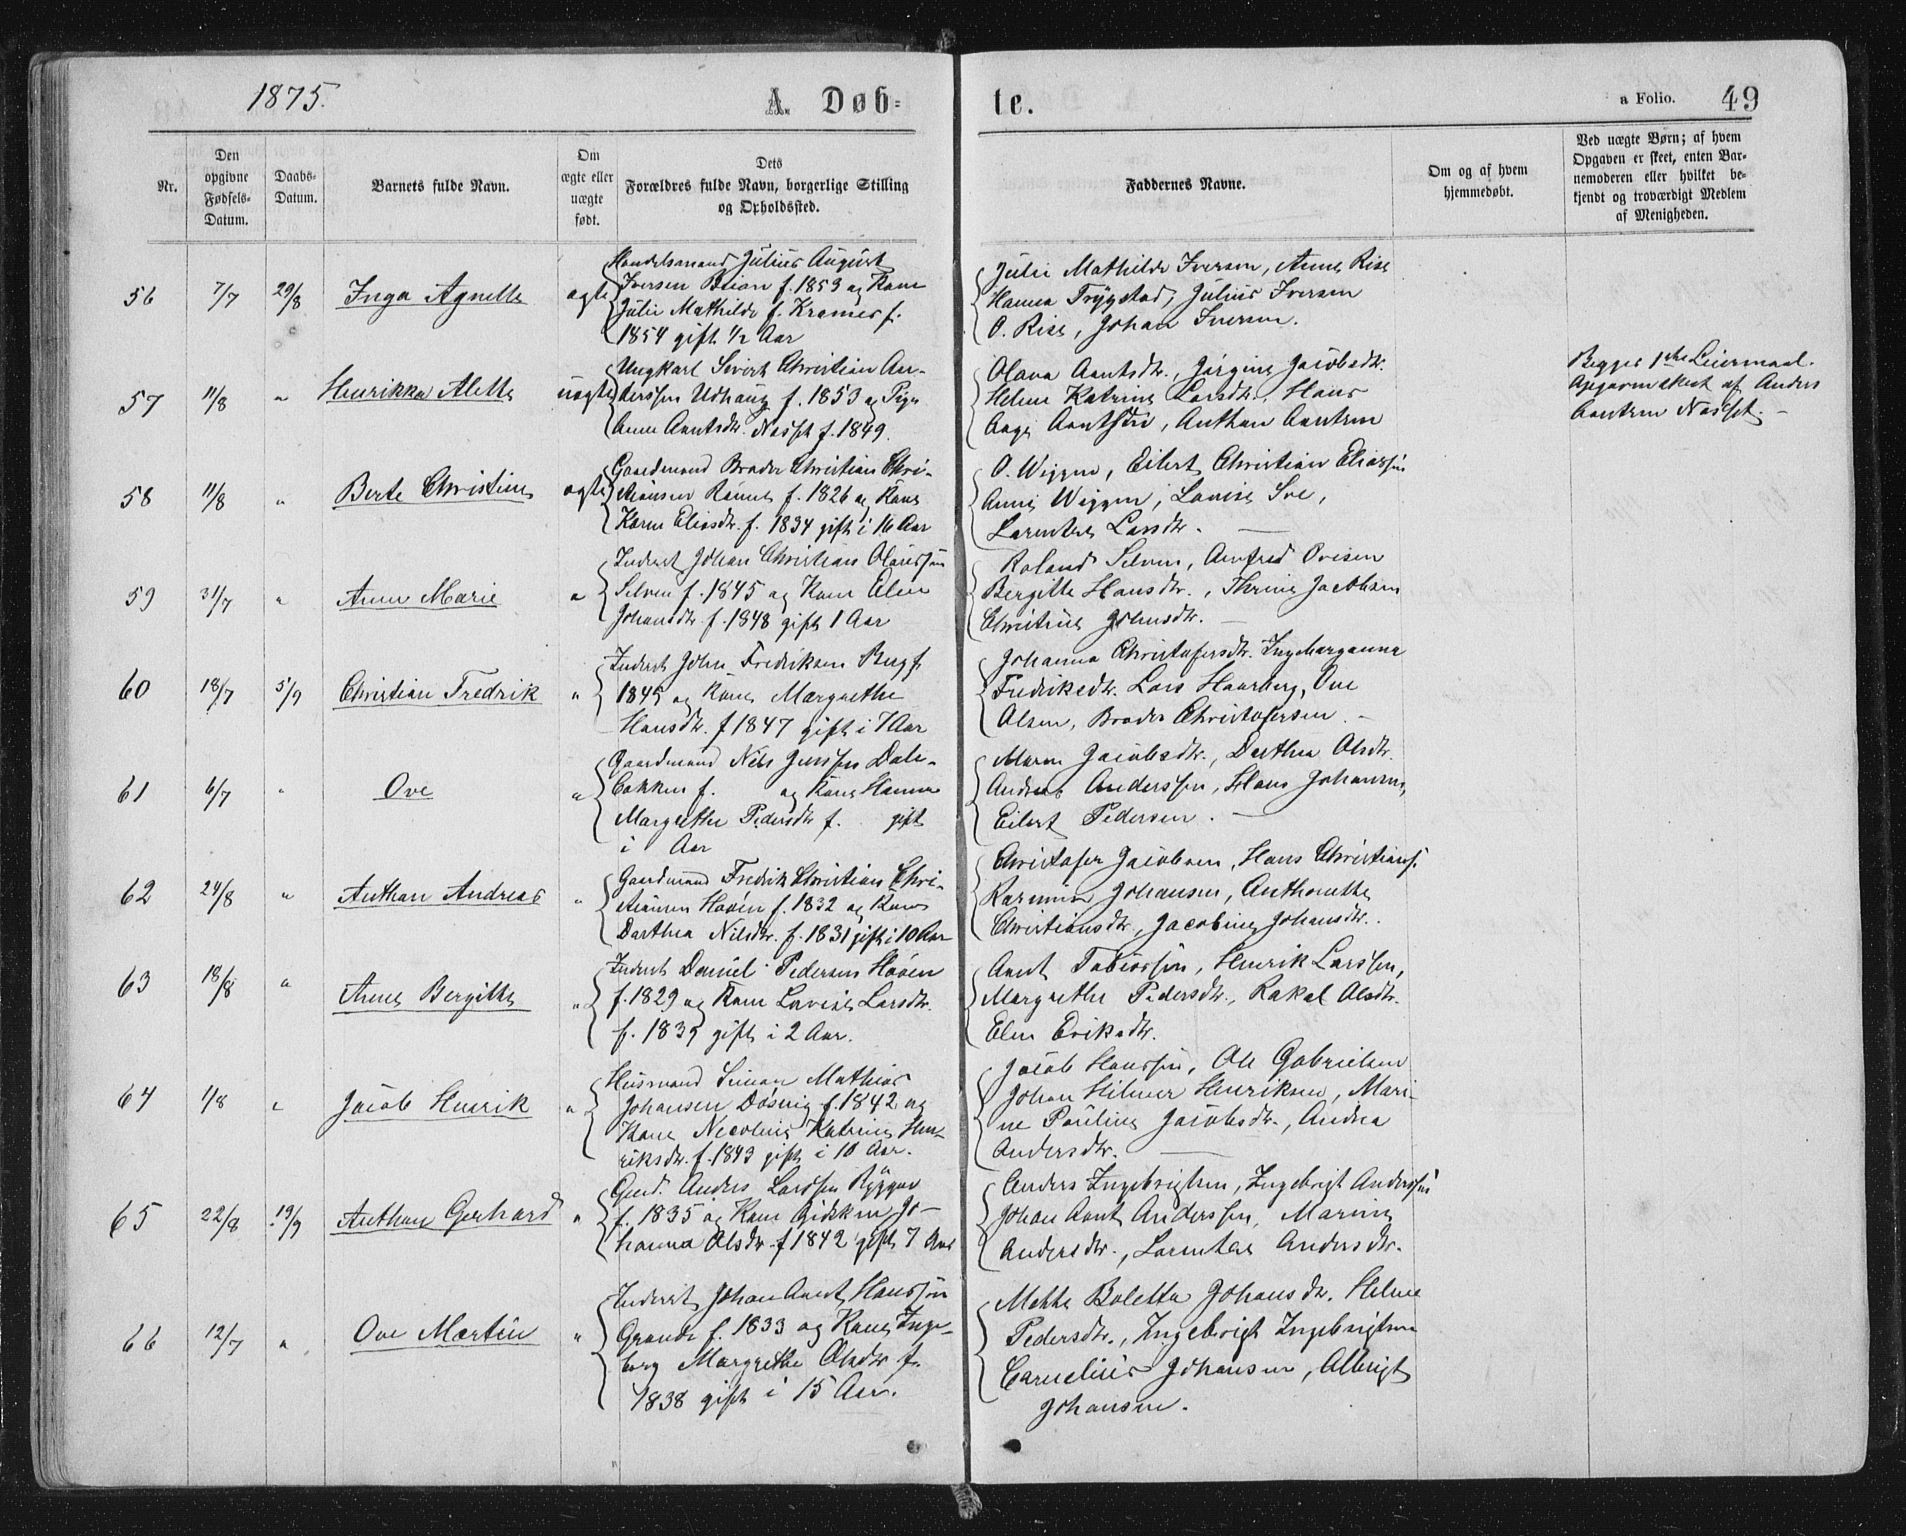 1875.
A. Døb-
te.
a Folio. 49
Nr.
Den
opgivne
Fødsels-
Datum.
Daabs-
Datum.
Barnets fulde Navn.
Om
ægte eller
uægte
født.
Dets
Forældres fulde Navn, borgerlige Stilling
og Opholdssted.
Faddernes Navne.
Om og af hvem
hjemmedøbt.
Ved uægte Børn; af hvem
Opgaven er skeet, enten Bar-
nemoderen eller hvilket be-
kjendt og troværdigt Medlem
af Menigheden.
56 7/7 29/8 Inga Agnette ægte
Handelsmand Julius August
Iversen f. 1853 og Kone
Julie Mathilde f. Kramer f.
1854 gift 1/2 Aar
Julie Mathilde Iversen, Anne Rise
Hanna Trygstad, Julius Iversen
O. Rise, Johan Iversen.
57 11/8 " Henrikka Alette uægte
Ungkarl Sivert Christian An-
derssen Udhaug f. 1853 og Pige
Anne Arntsdtr. Næsset f. 1849.
Olava Arntsdtr., Jørgine Jacobsdtr.
Helene Katrine Larsdtr., Hans
Aage Arntssøn, Anthon Arntsen
Begges 1ste Leiermaal.
Opgaven skeet af Anders
Arntsen Næsset. -
58 11/8 " Berte Christine ægte
Gaardmand Broder Christian Chri-
stiansen Rønne f. 1826 og Kone
Karen Eliasdtr. f. 1834 gift i 16 Aar
O. Wiggen, Eilert Christian Eliassøn
Anne Wiggen, Lovise Soe,
Larentse Larsdtr.
59 31/7 " Anne Marie "
Inderst Johan Christian Olaussøn
Selven f. 1845 og Kone Elen
Johansdtr. f. 1848 gift 1 Aar
Roland Selven, Arnfred Ovesen
Bergitte Hansdtr., Thrine Jacobsen
Christine Johnsdtr.
60 18/7 5/9 Christian Fredrik "
Inderst John Fredriksen Berg f.
1845 og Kone Margrethe
Hansdtr. f 1847 gift i 7 Aar
Johanna Christofersdtr. Ingeborganna
Fredriksdtr. Lars Haarberg, Ove
Olsen, Broder Christofersen. -
61 6/7 " Ove "
Gaardmand Nils Jenssen Dale-
bakken f. og Kone Hanna
Margrethe Pedersdtr f. gift
i Aar
Maren Jacobsdtr., Dorthea Olsdtr.
Andreas Anderssen, Hans Johansen,
Eilert Pedersen.
62 24/8 " Anthon Andreas "
Gaardmand Fredrik Christian Chri-
stiansen Hoven f. 1832 og Kone
Dorthea Nilsdtr. f. 1831 gift i 10 Aar
Christofer Jacobsen, Hans Christians.
Johansen, Anthonette
Christiansdtr, Jacobine Johansdtr.
63 18/8 " Anne Bergitte "
Inderst Daniel Pedersen Hoven
f. 1829 og Kone Lovise Larsdtr.
f. 1839 gift i 2 Aar.
Arnt Tobiassøn, Henrik Larssen,
Margrethe Pedersdtr., Rakel Olsdtr.
Elen Eriksdtr.
64 1/8 " Jacob Henrik "
Husmand Simon Mathias
Johansen Dosvig f. 1842 og
Kone Nicoline Katrine Hen-
riksdtr. f. 1843 gift i 10 Aar.
Jacob Hanssøn, Ole Gabrielsen
Johan Hilmer Henriksen, Mari-
ne Pauline Jacobsdtr., Andrea
Andersdtr.
65 22/8 19/9 Anthon Gerhard "
Gmd. Anders Larssen Ryggen
f. 1835 og Kone Gidsken Jo-
hanna Olsdtr. f 1842 gift 7 Aar
Anders Ingebrigtsen, Ingebrigt Anderssøn
Johan Arnt Anderssen, Marine
Andersdtr., Larentse Andersdtr.
66 12/7 " Ove Martin "
Inderst Johan Arnt Hanssøn
Grande f. 1833 og Kone Inge-
borg Margrethe Olsdtr f.
1838 gift i 15 Aar.
Mette Boletta Johansdtr. Helene
Pedersdtr., Ingebrigt Ingebrigtsen
Cornelius Johansen, Albrigt
Johansen.